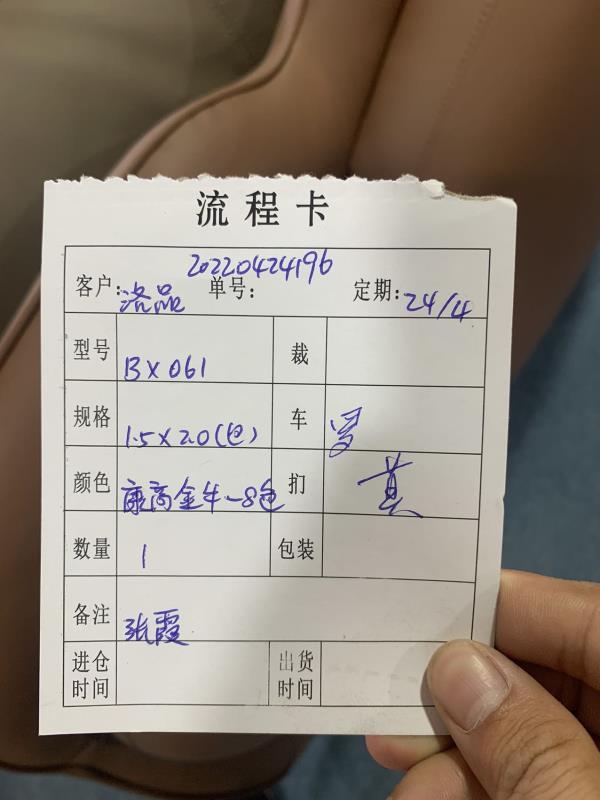 流程卡
20220424196
客户：洛品 单号： 定期：24/4
型号 BX061 裁
规格 1.5×2.0(包) 车 罗
颜色 康高金牛-8色 扪 黄
数量 1 包装
备注 张霞
进仓时间 出货时间